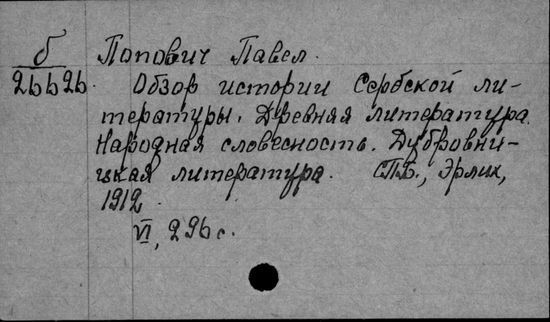 б Попович Павел.
26626. Обзор истории Сербской ли-
тературы. Древняя литература.
Народная словесность. Дубровни-
цкая литература. СПБ., Эрлих,
1912.
VI, 296 с.